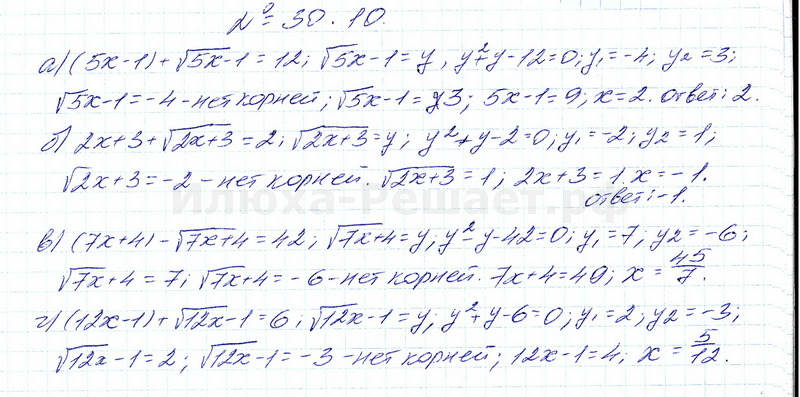 № 30.10.
а) (5x-1)+√5x-1 = 12; √5x-1 = y, y²+y-12=0; y₁=-4; y₂=3;
√5x-1 = -4 - нет корней; √5x-1 = 3; 5x-1=9; x=2. ответ: 2.
б) 2x+3+√2x+3 = 2; √2x+3 = y; y²+y-2=0; y₁=-2; y₂=1;
√2x+3 = -2 - нет корней. √2x+3 = 1; 2x+3=1, x=-1.
ответ: -1.
Илюха-Решает.рф
в) (7x+4)-√7x+4 = 42; √7x+4 = y, y²-y-42=0; y₁=7; y₂=-6;
√7x+4 = 7; √7x+4 = -6 - нет корней. 7x+4=49; x=45/7.
г) (12x-1)+√12x-1 = 6, √12x-1 = y; y²+y-6=0; y₁=2; y₂=-3;
√12x-1 = 2; √12x-1 = -3 - нет корней; 12x-1=4; x=5/12.